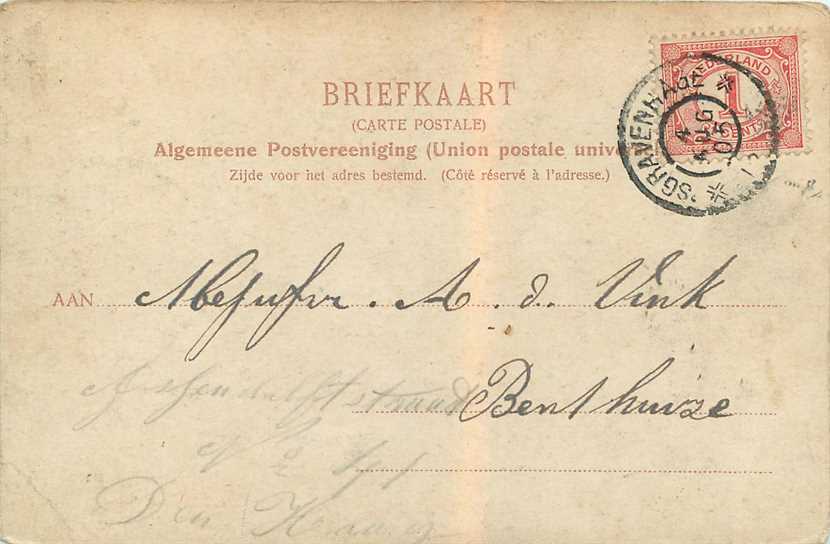 BRIEFKAART
(CARTE POSTALE)
Algemeene Postvereeniging (Union postale unive
Zijde voor het adres bestemd. (Côté réservé à l'adresse.)
NEDERLAND
1
CENT
'SGRAVENHAGE
4 AUG 05
AAN Mejufvr. A. d. Vink
Benthuize
Den